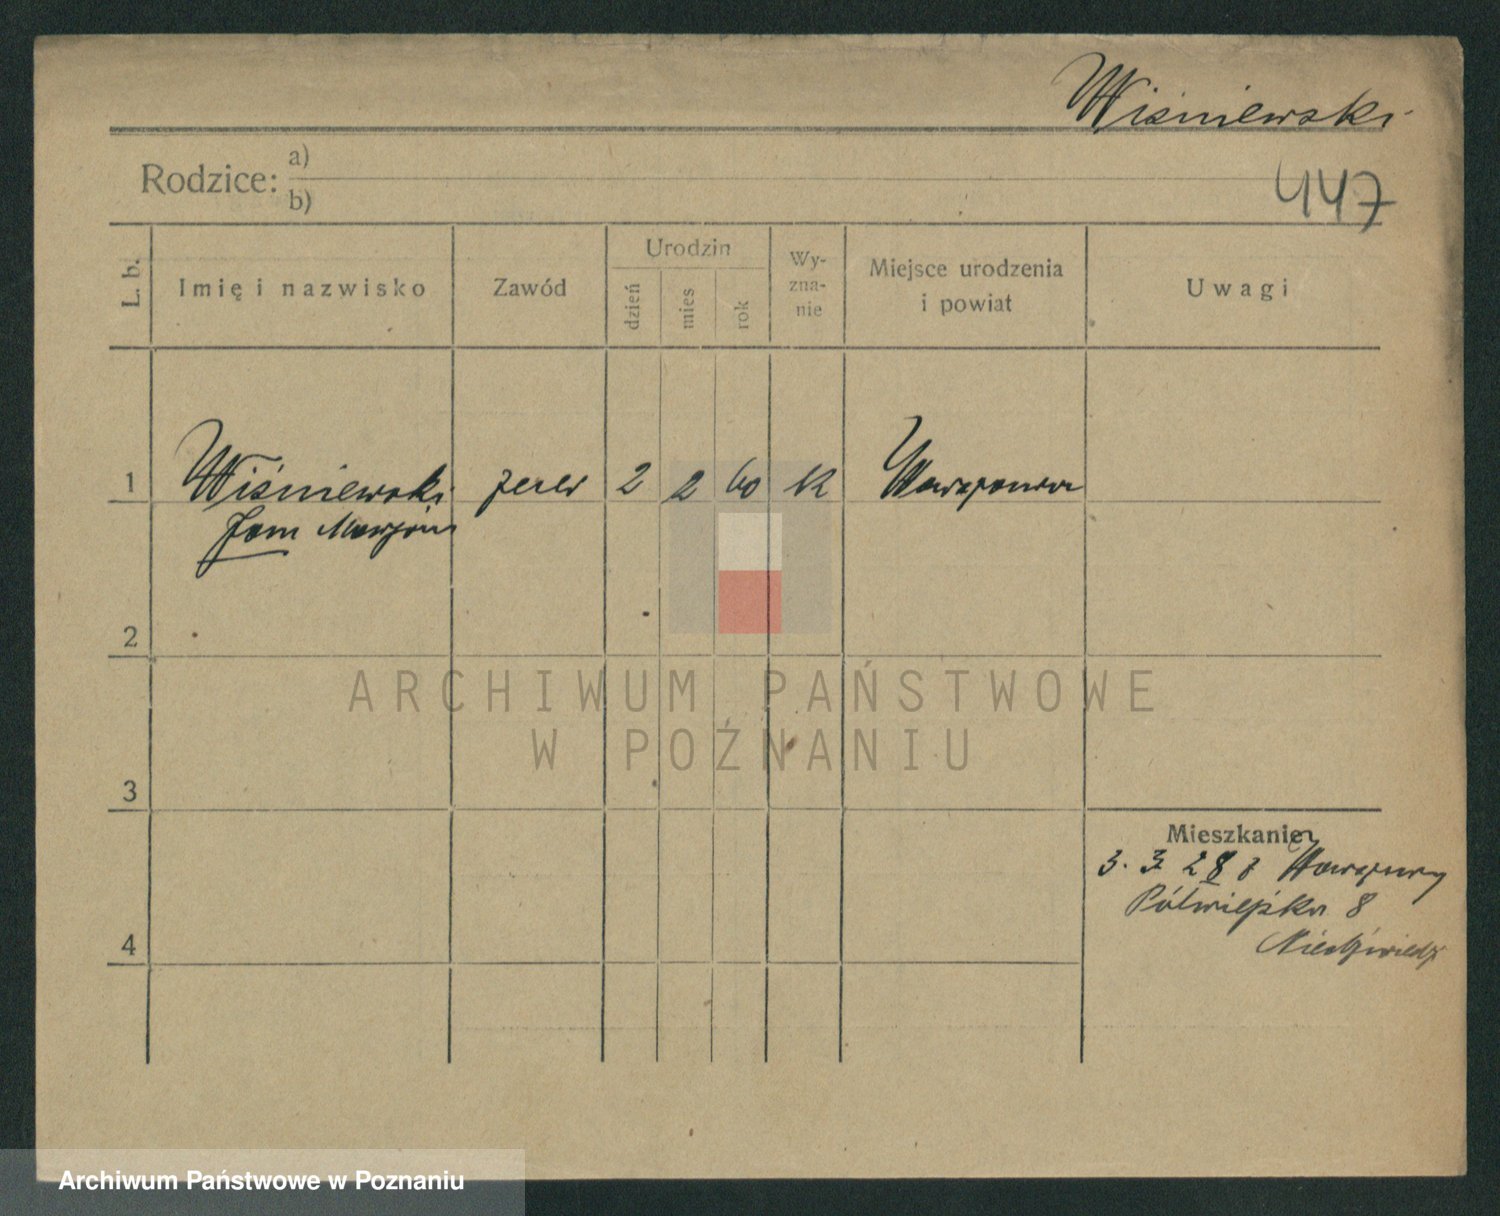 Wiśniewski
Rodzice: a)
b)
447
L. b. Imię i nazwisko Zawód Urodzin dzień mies rok Wy-zna-nie Miejsce urodzenia i powiat Uwagi
1 Wiśniewski 2 2 60 k Warszawa
Jan Marjan
2
ARCHIWUM PAŃSTWOWE
W POZNANIU
3
Mieszkanie
3. 3 28 z Warszawy
Półwiejska 8
Niedźwiedź
4
Archiwum Państwowe w Poznaniu